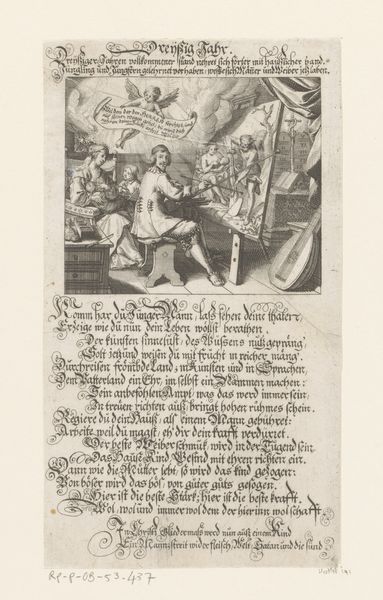 Dreyßig Jahr.
Dreyßiger Jahren vollkommener stand nehret sich förter mit häußlicher hand.
Jüngling und Jungfern gelehrnet vorhaben,
Komm har du Junger Mann, laß sehen deine thaten:
Erzeige wie du nun dein Leben wöllst berathen.
Der künsten sinnelust, des Wüssens nutzgepräng,
Gott jetzund weisen du mit frücht in reicher mäng.
Durchreisen frömbde Land, in Künsten und in Sprachen,
Dem Vatterland ein Ehr, im selbst ein Nammen machen:
Sein anbefohlen Ampt, was das werd immer sein,
In treuen richten auß, bringt hohen rühmes schein.
Regiere du dein Hauß, als einem Mann gebühret:
Arbeite weil du magst, eh dir dein krafft verdirret.
Der beste Weiber schmuck, wird in der Tugend sein.
Das Hauß, Kind, Gesind mit ehren richten ein.
Dann wie die Mütter lebt, so wird das kind gezogen:
Von böser wird das böß, von güter güts gesogen.
Hier ist die beste Stärk, hier ist die beste krafft.
Wol, wol und immer wol dem der hierinn wol schafft.
In Christi Gliedermaß werd nun auß einem Kind
Ein Mann, streit wider fleisch, Welt, Satan und die sünd
RP-P-OB-53.437